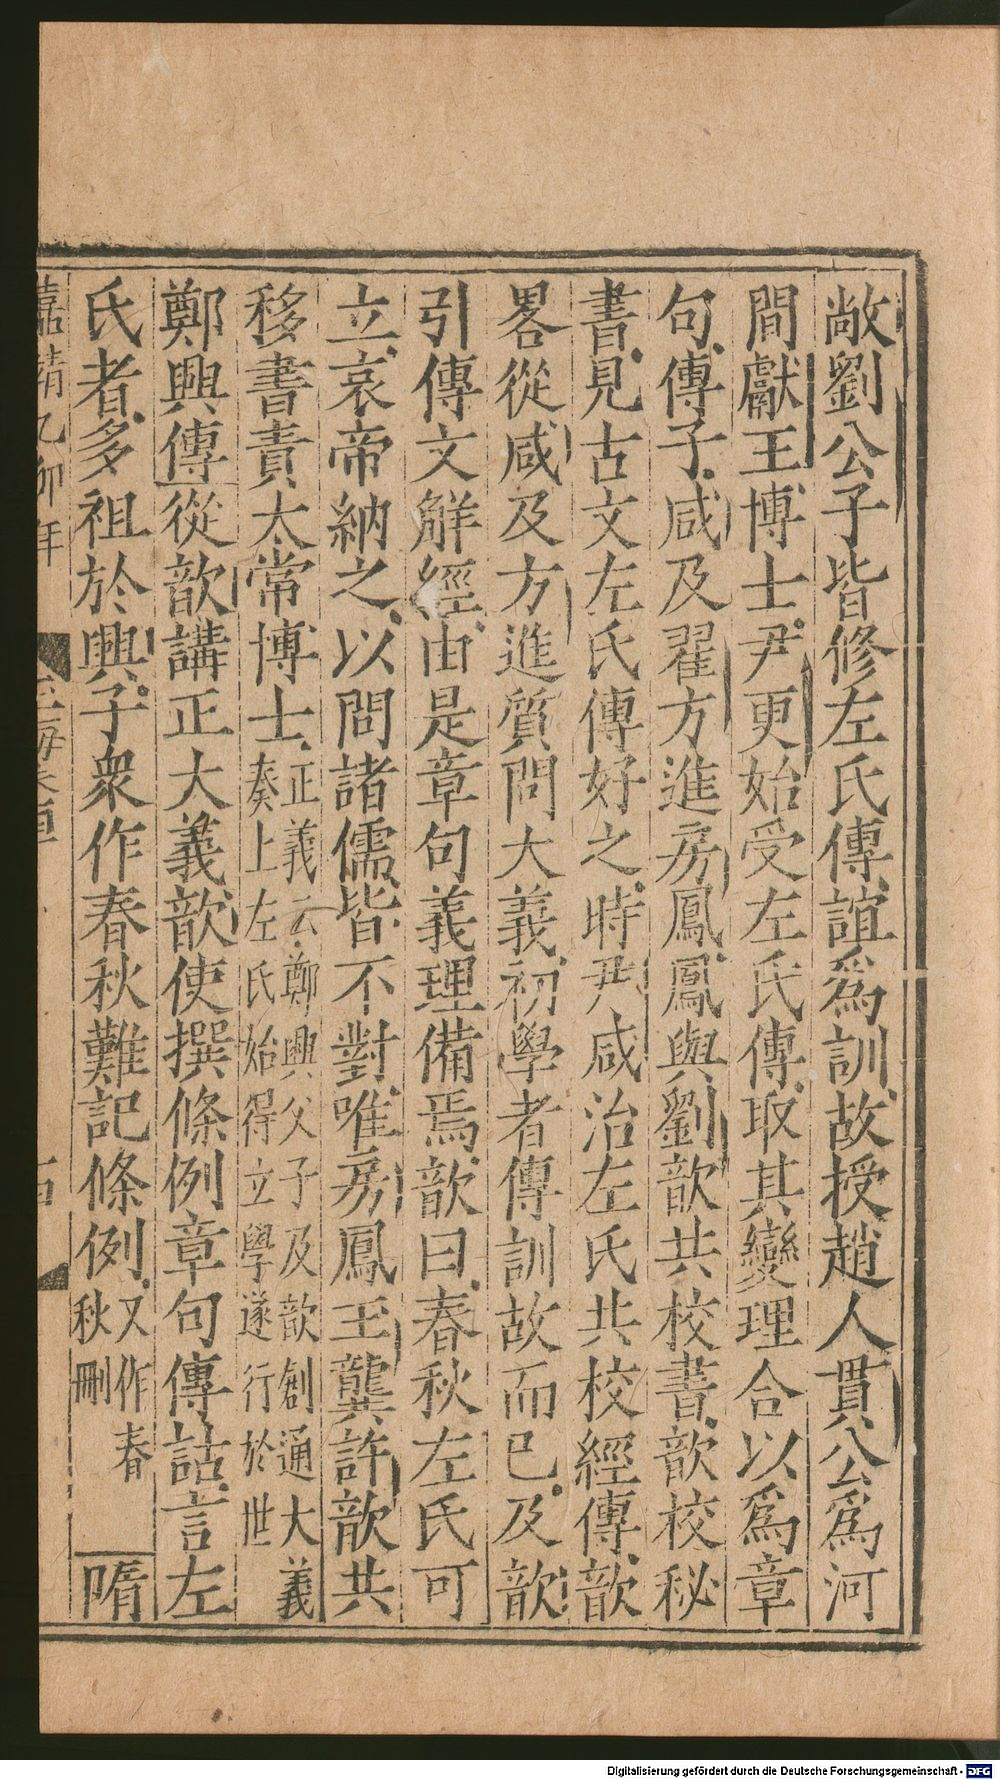 敞劉公子皆修左氏傳誼爲訓故授趙人貫公爲河
間獻王博士尹更始受左氏傳取其變理合以爲章
句傳子咸及翟方進房鳳鳳與劉歆共校書歆校秘
書見古文左氏傳好之時尹咸治左氏共校經傳歆
畧從咸及方進質問大義初學者傳訓故而已及歆
引傳文解經由是章句義理備焉歆曰春秋左氏可
立哀帝納之以問諸儒皆不對唯房鳳王龔許歆共
移書責太常博士正義云鄭興父子及歆創通大義
奏上左氏始得立學遂行於世
鄭興傳從歆講正大義歆使撰條例章句傳詁言左
氏者多祖於興子衆作春秋難記條例又作春
秋刪
隋
嘉靖乙卯年
玉海卷
Digitalisierung gefördert durch die Deutsche Forschungsgemeinschaft - DFG